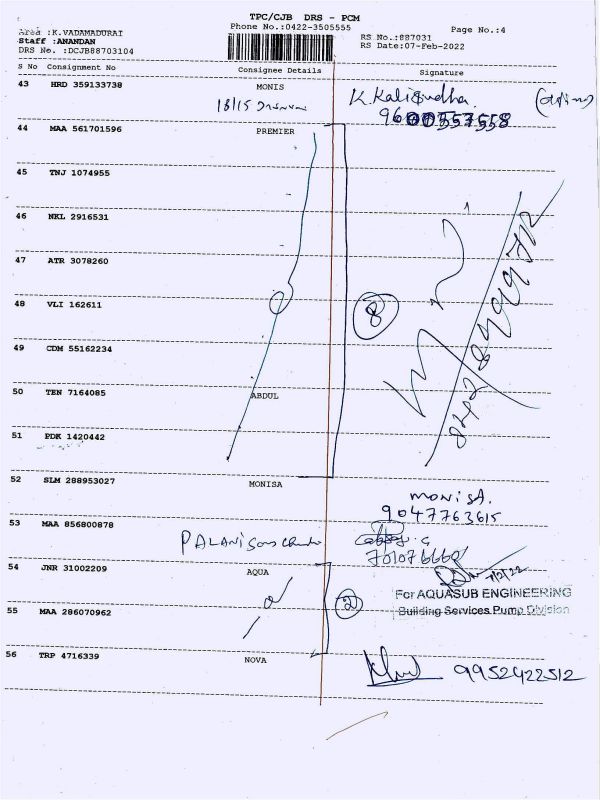 TPC/CJB DRS - PCM
Area :K.VADAMADURAI
Phone No.:0422-3505555
Page No.:4
Staff :ANANDAN
RS No.:887031
DRS No. :DCJB88703104
RS Date:07-Feb-2022
S No Consignment No Consignee Details Signature
43 HRD 359133738 MONIS
44 MAA 561701596 PREMIER
45 TNJ 1074955
46 NKL 2916531
47 ATR 3078260
48 VLI 162611
8
49 CDM 55162234
50 TEN 7164085 ABDUL
51 PDK 1420442
52 SLM 288953027 MONISA
MONISA.
9047763615
53 MAA 856800878
54 JNR 31002209 AQUA
7/2/22
For AQUASUB ENGINEERING
Building Services Pump Division
55 MAA 286070962
2
56 TRP 4716339 NOVA
9952422512